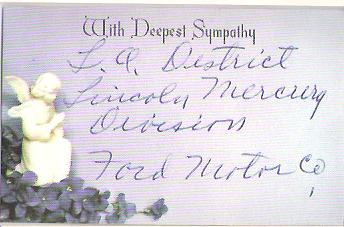 With Deepest Sympathy
L.A. District
Lincoln Mercury
Division
Ford Motor Co